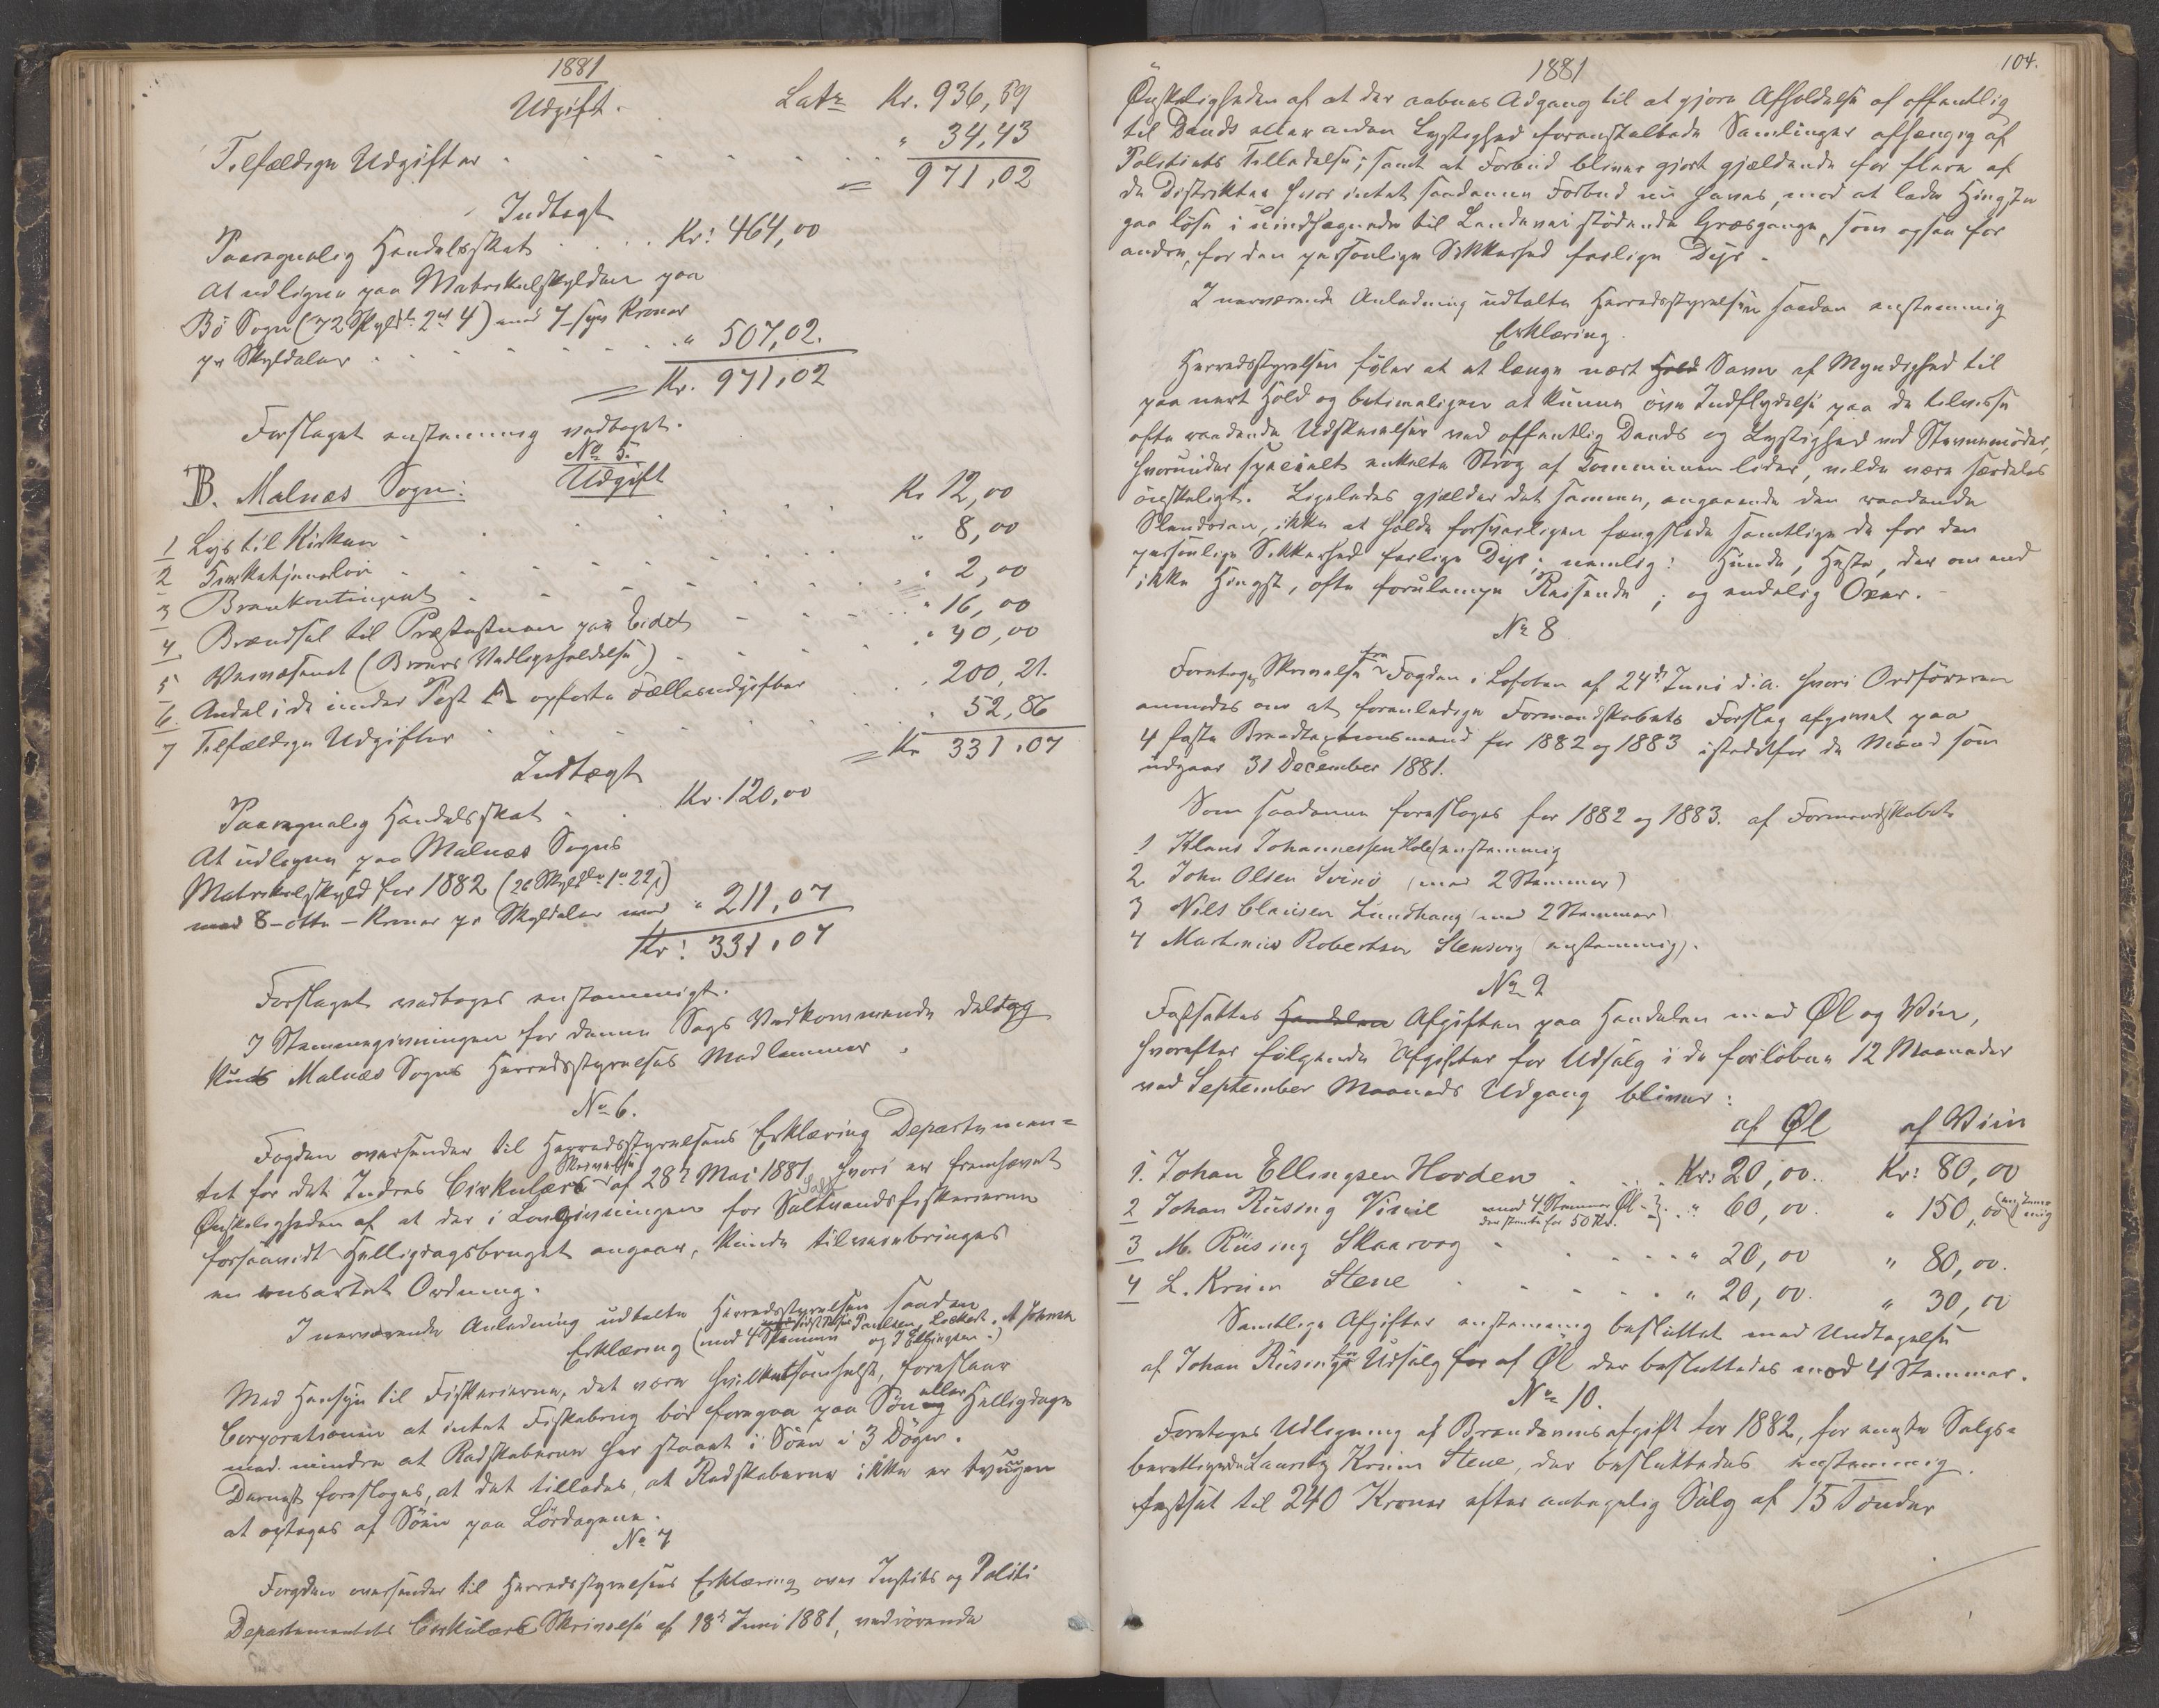 1881
Udgift.
Latr Kr. 936,59
Tilfældige Udgifter . . . . . . . " 34,43
= 971,02
Indtægt
Paaregnelig Handelsskat . . . . Kr: 464,00
At udlignes paa Matrikulskylden paa
Bö Sogn (72 Skyldl. 2 4) med 7 - syv Kroner
pr Skyldaler . . . . . . . " 507,02.
= Kr. 971,02
Forslaget enstemmig vedtaget.
No 5.
B. Malnæs Sogn:
Udgift
1 Lys til Kirken . . . . . . Kr 12,00
2 Kirketjenerlön . . . . . . " 8,00
3 Brankontingent . . . . . . " 2,00
4. Brændsel til Præstestuen paa Eidet . . . " 16,00
5 Veivæsenet (Broers Vedligeholdelse) . . . " 40,00
6. Andel i de under Post A opförte Fællesudgifter . . " 200,21.
7 Tilfældige Udgifter . . . . . . " 52,86
= Kr 331,07
Indtægt
Paaregnelig Handelsskat . . Kr. 120,00
At udlignes paa Malnæs Sogns
Matrikulskyld for 1882 (26 Skyldlr 1 22)
med 8 - otte - Kroner pr Skyldaler med " 211,07
Kr: 331,07
Forslaget vedtoges enstemmigt.
I Stemmegivningen for denne Sags Vedkommende deltog
kun Malnæs Sogns Herredsstyrelses Medlemmer.
No 6.
Fogden oversender til Herredsstyrelsens Erklæring Departemen=
tet for det Indres Cirkulære Skrivelse af 28de Mai 1881, hvori er fremhævet
Önskeligheden af at der i Lovgivningen for Saltvandsfiskerierne
forsaavidt Helligdagsbruget angaar, kunde tilveiebringes
en ensartet Ordning.
I nærværende Anledning udtalte Herredsstyrelsen saadan
Erklæring (med 4 Stemmer Paulsen, Lockert, A Johnsen
og J Ellingsen.)
Med Hensyn til Fiskerierne, det være hvilketsomhelst, foreslaar
Corporationen at intet Fiskebrug bör foregaa paa Sön eller Helligdage
med mindre at Redskaberne har staaet i Söen i 3 Döger.
Dernæst foresloges, at det tillades, at Redskaberne ikke er tvungen
at optages af Söen paa Lördagene.
No 7
Fogden oversender til Herredsstyrelsens Erklæring over Justits og Politi
Departementets Cirkulære Skrivelse af 18de Juni 1881, vedrörende
104.
1881
Önskeligheden af at der aabnes Adgang til at gjöre Afholdelse af offentlig
til Dands eller anden Lystighed foranstaltede Samlinger afhængig af
Politiets Tilladelse; samt at Forbud bliver gjort gjældende for flere af
de Distrikter hvor intet saadanne Forbud nu haves, mod at lade Hingste
gaa löse i uindhegnede til Landevei stödende Græsgange, som ogsaa for
andre, for den personlige Sikkerhed farlige Dyr.
I nærværende Anledning udtalte Herredsstyrelsen saadan enstemmig
Erklæring.
Herredsstyrelsen föler at et længe nært Savn af Myndighed til
paa nært Hold og betimeligen at kunne öve Indflydelse paa de tilvisse
ofte raadende Udskeielser ved offentlig Dands og Lystighed ved Stevnemöder,
hvorunder specielt enkelte Strög af Kommunen lider, vilde være særdeles
önskeligt. Ligeledes gjælder det samme, angaaende den raadende
Slendrian, ikke at holde forsvarligen fængslede samtlige de for den
personlige Sikkerhed farlige Dyr; nemlig: Hunde, Heste, der om end
ikke Hingst, ofte forulempe Reisende; og endelig Oxer.
No 8
Foretoges Skrivelse fra Fogden i Lofoten af 24de Juni d.a. hvori Ordföreren
anmodes om at foranledige Formandskabets Forslag afgivet paa
4 faste Brandtaxtionsmænd for 1882 og 1883 istedetfor de Mænd som
udgaar 31 December 1881.
Som saadanne foresloges for 1882 og 1883. af Formandskabet
1 Klaus Johannessen Hole (enstemmig
2 John Olsen Svinö (med 2 Stemmer)
3 Nils Clausen Lundhaug (med 2 Stemmer)
4 Martinus Robertsen Stensvig (enstemmig).
No 9
Fastsattes Handelen Afgiften paa Handelen med Øl og Vin,
hvorefter fölgende Afgifter for Udsalg i de forlöbne 12 Maaneder
ved September Maaneds Udgang bliver:
af Øl af Viin
1. Johan Ellingsen Hovden . . . Kr: 20,00. Kr: 80,00
2 Johan Rüsing Vinie med 4 Stemmer Øl - der stemte for 50 Kr. . " 60,00. " 150,00 (enstemmig
3 M. Rüsing Skaarvog . . . . . " 20,00 " 80,00.
4 L. Kriim Stene . . . . . " 20,00. " 30,00
Samtlige Afgifter enstemmig besluttet med Undtagelse
af Johan Rüsings for Udsalg for af Øl der besluttedes med 4 Stemmer.
No 10.
Foretoges Udligning af Brændevinsafgift for 1882, for eneste Salgs=
berettigede Lauritz Kriim Stene, der besluttedes enstemmig
fastsat til 240 Kroner efter antagelig Salg af 15 Tönder